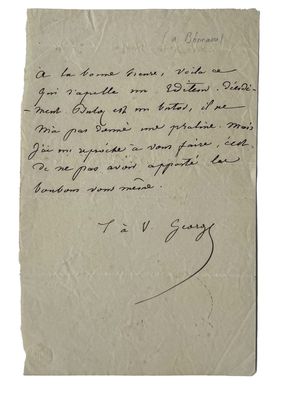 (a Bonnaire)
A la bonne heure, voila ce
qui s'apelle un Editeur. Décidé-
-ment Buloz est un butor, il ne
m'a pas donné une praline. Mais
j'ai un reproche à vous faire, c'est
de ne pas avoir apporté les
bonbons vous même.
T à V George